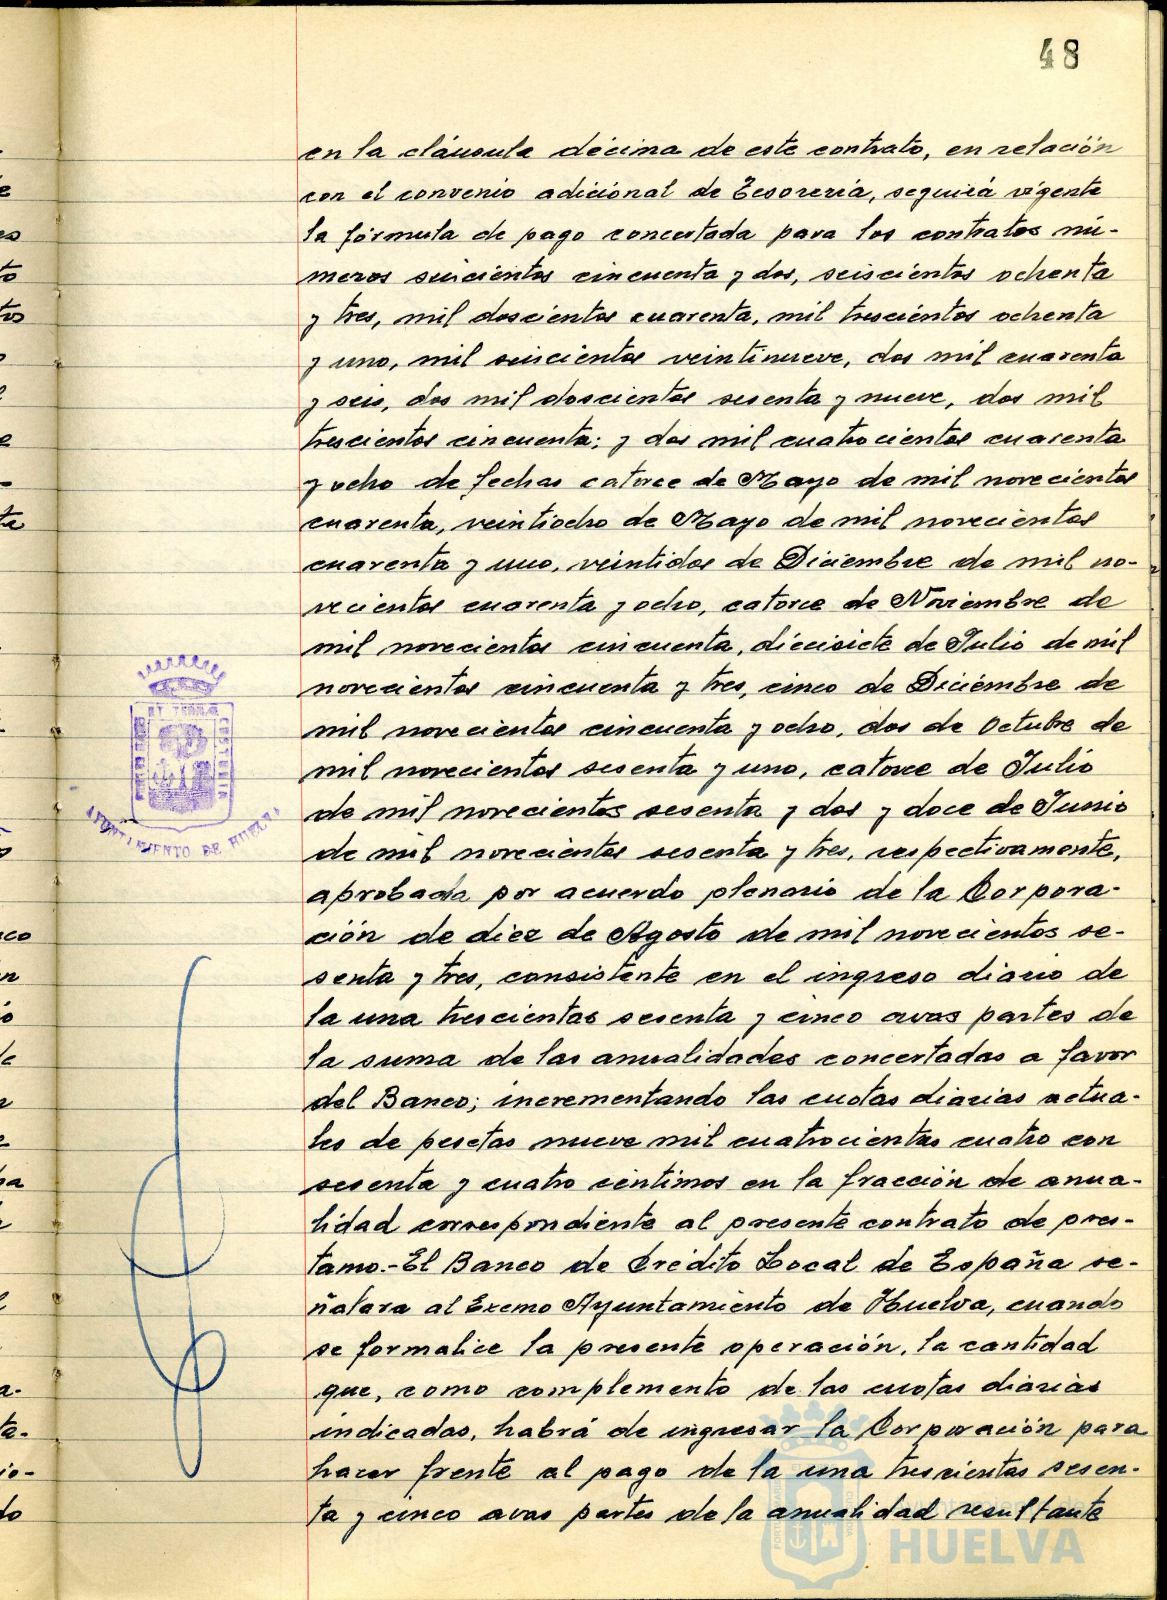 48
en la cláusula décima de este contrato, en relación
con el convenio adicional de Tesorería, seguirá vigente
la fórmula de pago concertada para los contratos nú-
meros seiscientos cincuenta y dos, seiscientos ochenta
y tres, mil doscientos cuarenta, mil trescientos ochenta
y uno, mil seiscientos veintinueve, dos mil cuarenta
y seis, dos mil doscientos sesenta y nueve, dos mil
trescientos cincuenta; y dos mil cuatrocientos cuarenta
y ocho de fechas catorce de Mayo de mil novecientos
cuarenta, veintiocho de Mayo de mil novecientos
cuarenta y uno, veintidos de Diciembre de mil no-
vecientos cuarenta y ocho, catorce de Noviembre de
mil novecientos cincuenta, diecisiete de Julio de mil
novecientos cincuenta y tres, cinco de Diciembre de
mil novecientos cincuenta y ocho, dos de Octubre de
mil novecientos sesenta y uno, catorce de Julio
de mil novecientos sesenta y dos y doce de Junio
de mil novecientos sesenta y tres, respectivamente,
aprobada por acuerdo plenario de la Corpora-
ción de diez de Agosto de mil novecientos se-
senta y tres, consistente en el ingreso diario de
la una trescientas sesenta y cinco avas partes de
la suma de las anualidades concertadas a favor
del Banco; incrementando las cuotas diarias actua-
les de pesetas nueve mil cuatrocientas cuatro con
sesenta y cuatro céntimos en la fracción de anua-
lidad correspondiente al presente contrato de prés-
tamo.- El Banco de Crédito Local de España se-
ñalara al Excmo Ayuntamiento de Huelva, cuando
se formalice la presente operación, la cantidad
que, como complemento de las cuotas diarias
indicadas, habrá de ingresar la Corporación para
hacer frente al pago de la una trescientas sesen-
ta y cinco avas partes de la anualidad resultante
AYUNTAMIENTO DE HUELVA
HUELVA